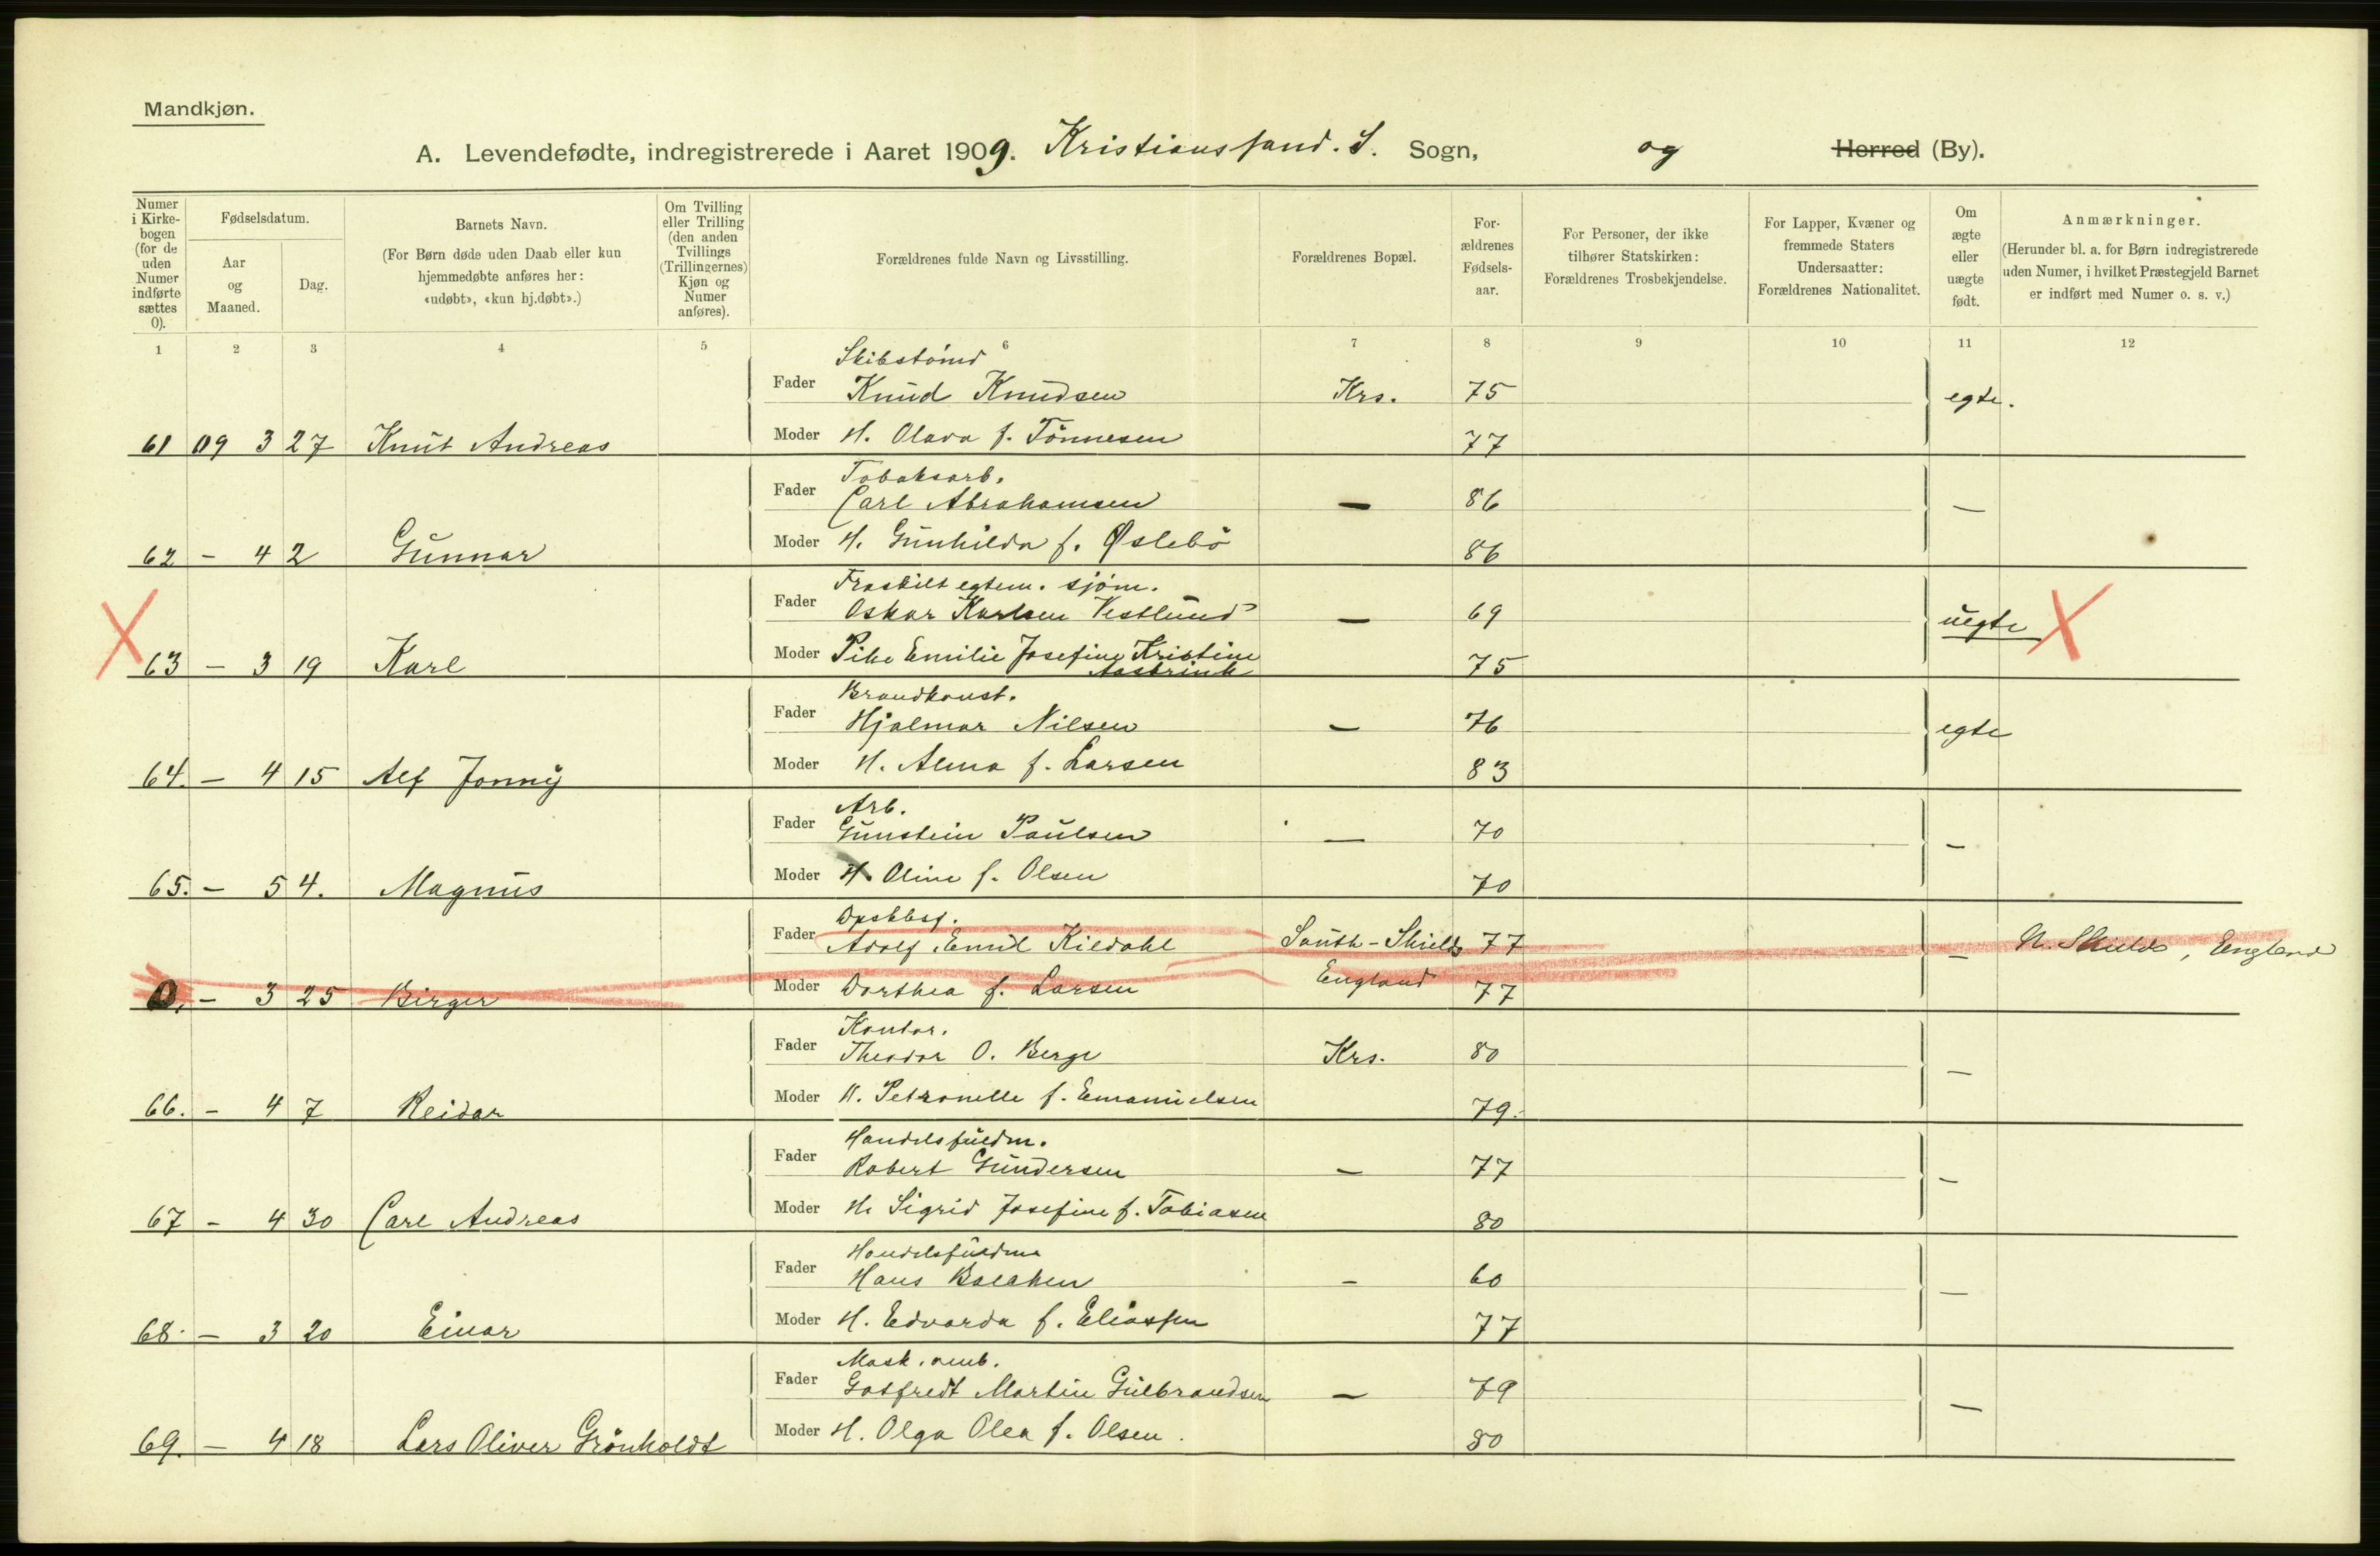 Mandkjøn.
A. Levendefødte, indregistrerede i Aaret 1909. Kristianssand. S. Sogn, og Herred (By).
Numer i Kirkebogen (for de uden Numer indførte sættes 0).
Fødselsdatum.
Aar og Maaned.
Dag.
Barnets Navn.
(For Børn døde uden Daab eller kun hjemmedøbte anføres her: «udøbt», «kun hj.døbt».)
Om Tvilling eller Trilling (den anden Tvillings (Trillingernes) Kjøn og Numer anføres).
Forældrenes fulde Navn og Livsstilling.
Forældrenes Bopæl.
Forældrenes Fødselsaar.
For Personer, der ikke tilhører Statskirken: Forældrenes Trosbekjendelse.
For Lapper, Kvæner og fremmede Staters Undersaatter: Forældrenes Nationalitet.
Om ægte eller uægte født.
Anmærkninger.
(Herunder bl. a. for Børn indregistrerede uden Numer, i hvilket Præstegjeld Barnet er indført med Numer o. s. v.)
1 2 3 4 5 6 7 8 9 10 11 12
Skibstømd
Fader Knud Knudsen Krs. 75 egte.
61 09 3 27 Knut Andreas Moder H. Olava f. Tönnesen 77
Tobaksarb.
Fader Carl Abrahamsen — 86 —
62 - 4 2 Gunnar Moder H. Gunhilda f. Øslebö 86
Fraskilt egtem. sjöm.
Fader Oskar Karlsen Vestlund — 69 uegte X
X 63 - 3 19 Karl Moder Pike Emilie Josefine Kristine Aasbrink 75
Brandkonst.
Fader Hjalmar Nilsen — 76 egte
64. - 4 15 Alf Jonny Moder H. Alma f. Larsen 83
Arb.
Fader Gunstein Paulsen — 70 —
65. - 5 4. Magnus Moder H. Oline f. Olsen 70
Fader Adolf Emil Kildahl South-Shields 77 — N. Shields, England
0. - 3 25 Birger Moder Dorthea f. Larsen England 77
Kontor.
Fader Theodor O. Berge Krs. 80 —
66. - 4 7 Reidar Moder H. Petronelle f. Emanuelsen 79.
Handelsfuldm.
Fader Robert Gundersen — 77 —
67 - 4 30 Carl Andreas Moder H. Sigrid Josefine f. Tobiasen 80
Handelsfuldm
Fader Hans — 60 —
68. - 3 20 Einar Moder H. Edvarda f. Eliassen 77
Mask. amb.
Fader Gotfredt Martin Gulbrandsen — 79 —
69. - 4 18 Lars Oliver Grönholdt Moder H. Olga Olea f. Olsen. 80